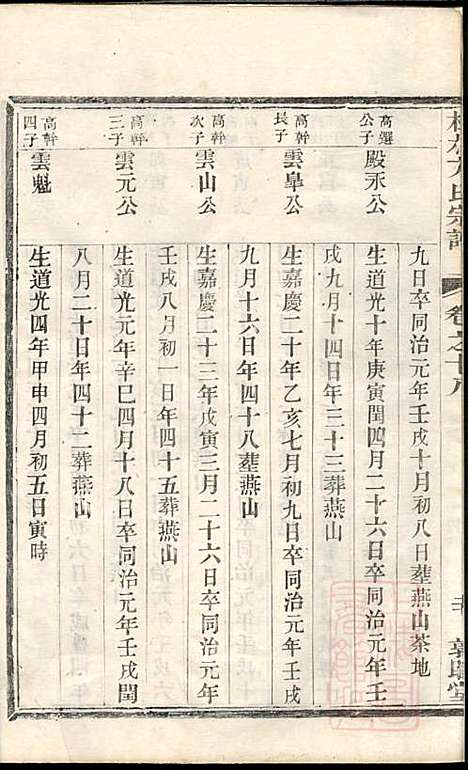 方氏宗譜
卷之十八
九日卒同治元年壬戌十月初八日塟燕山茶地
高選公子
殿永公
生道光十年庚寅閏四月二十六日卒同治元年壬
戌九月十四日年三十三葬燕山
高幹長子
雲皐公
生嘉慶二十年乙亥七月初九日卒同治元年壬戌
九月十六日年四十八塟燕山
高幹次子
雲山公
生嘉慶二十三年戊寅三月二十六日卒同治元年
壬戌八月初一日年四十五葬燕山
高幹三子
雲元公
生道光元年辛巳四月十八日卒同治元年壬戌閏
八月二十日年四十二葬燕山
高幹四子
雲魁
生道光四年甲申四月初五日寅時